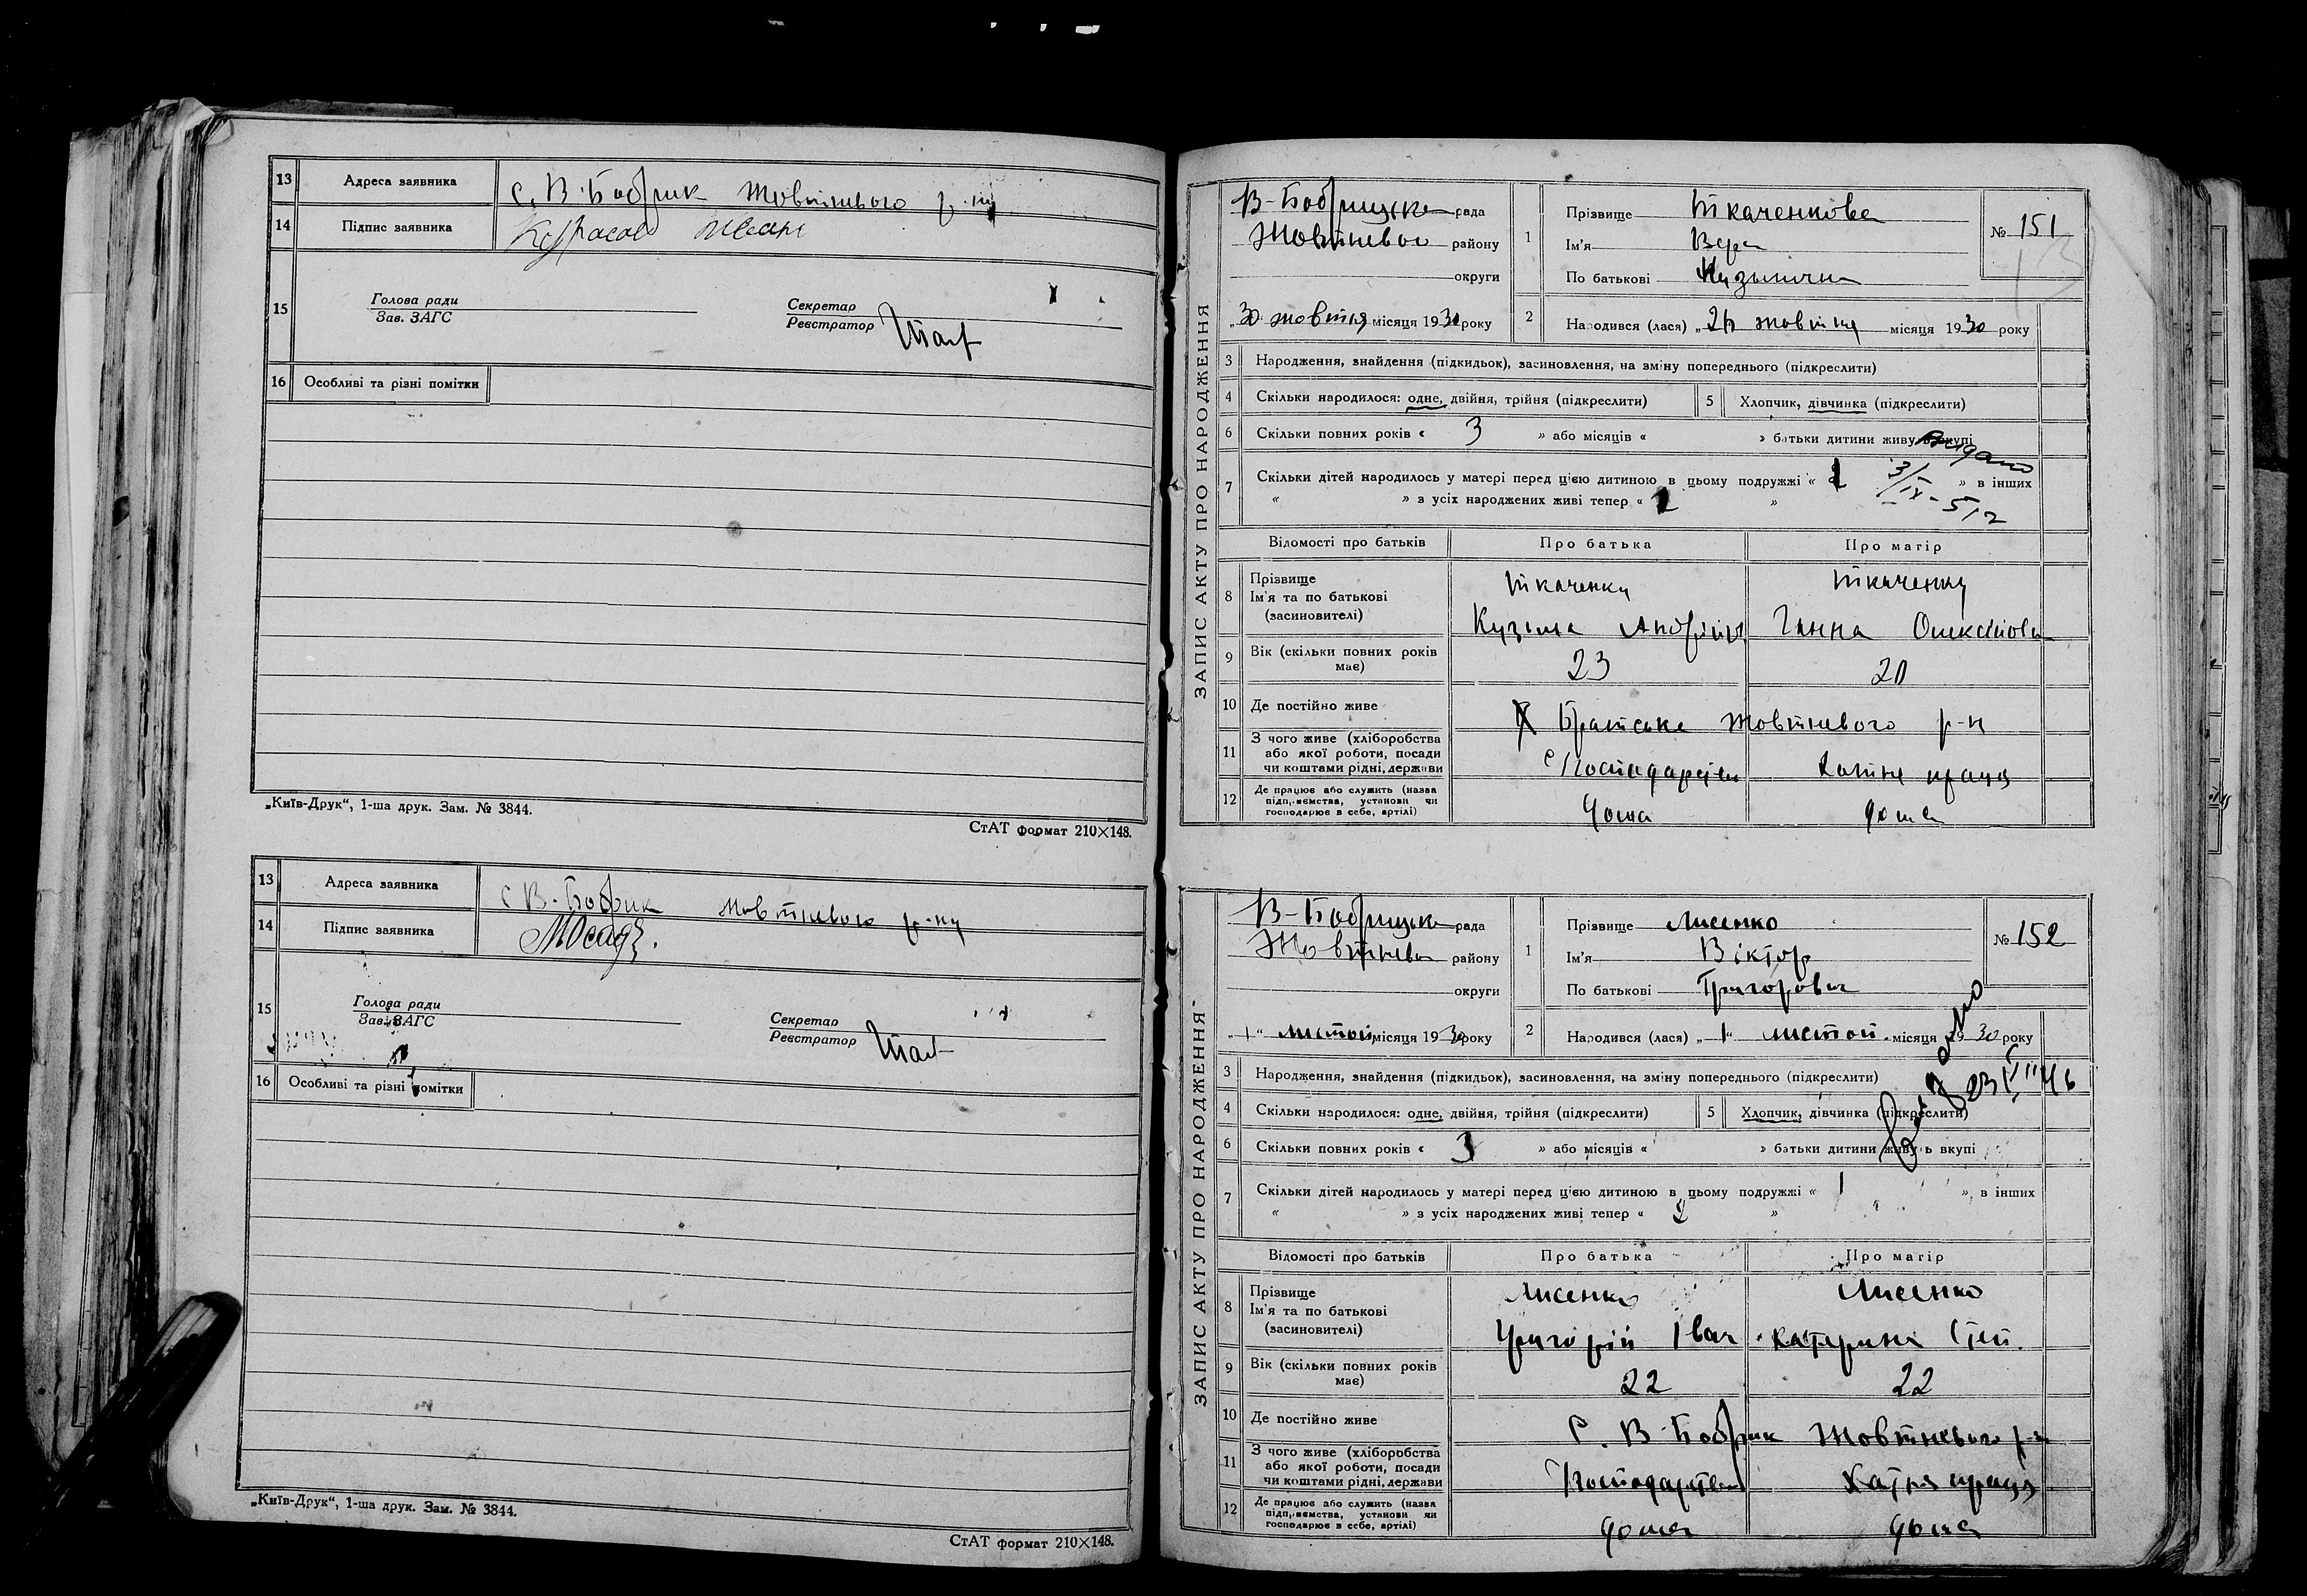 13 Адреса заявника с. В-Бобрик Жовтневого р-ну
14 Підпис заявника Іван
15 Голова ради
Зав. ЗАГС
Секретар
Реєстратор
16 Особливі та різні помітки
„Київ-Друк“, 1-ша друк. Зам. № 3844.
СтАТ формат 210×148.
13 Адреса заявника с В-Бобрик Жовтневого р-ну
14 Підпис заявника
15 Голова ради
Зав. ЗАГС
Секретар
Реєстратор
16 Особливі та різні помітки
„Київ-Друк“, 1-ша друк. Зам. № 3844.
СтАТ формат 210×148.
ЗАПИС АКТУ ПРО НАРОДЖЕННЯ
В-Бобрицька рада
Жовтневого району
округи
„30 жовтня місяця 1930 року
1 Прізвище Ткаченкова
Ім'я Вера
По батькові Кузьмична
№ 151
2 Народився (лася) „ жовтня місяця 1930 року
3 Народження, знайдення (підкидьок), засиновлення, на зміну попереднього (підкреслити)
4 Скільки народилося: одне, двійня, трійня (підкреслити)
5 Хлопчик, дівчинка (підкреслити)
6 Скільки повних років « 3 » або місяців « » батьки дитини живуть вкупі
Видано
3/IX-51
7 Скільки дітей народилось у матері перед цією дитиною в цьому подружжі « 1 » в інших
« » з усіх народжених живі тепер « 2 »
Відомості про батьків Про батька Про матір
8 Прізвище Ткаченко Ткаченко
Ім'я та по батькові
(засиновителі) Кузьма Андрійов. Ганна Олексіїовн
9 Вік (скільки повних років має) 23 20
10 Де постійно живе Братське Жовтневого р-н
11 З чого живе (хліборобства
або якої роботи, посади
чи коштами рідні, держави Господарством Хатня праця
12 Де працює або служить (назва
підприємства, установи чи
господарює в себе, артілі) дома дома
ЗАПИС АКТУ ПРО НАРОДЖЕННЯ
В-Бобрицька рада
Жовтнево району
округи
„1“ листоп місяця 1930 року
1 Прізвище Лисенко
Ім'я Віктор
По батькові Григорович
№ 152
2 Народився (лася) „1“ листоп. місяця 1930 року
3 Народження, знайдення (підкидьок), засиновлення, на зміну попереднього (підкреслити)
4 Скільки народилося: одне, двійня, трійня (підкреслити)
5 Хлопчик, дівчинка (підкреслити)
6 Скільки повних років « 3 » або місяців « » батьки дитини живуть вкупі
7 Скільки дітей народилось у матері перед цією дитиною в цьому подружжі « 1 » в інших
« » з усіх народжених живі тепер « 2 »
Відомості про батьків Про батька Про матір
8 Прізвище Лисенко Лисенко
Ім'я та по батькові
(засиновителі) Григорій Іван Катерина Степ.
9 Вік (скільки повних років має) 22 22
10 Де постійно живе С. В-Бобрик Жовтневого р-н
11 З чого живе (хліборобства
або якої роботи, посади
чи коштами рідні, держави Господарством Хатня праця
12 Де працює або служить (назва
підприємства, установи чи
господарює в себе, артілі) дома дома